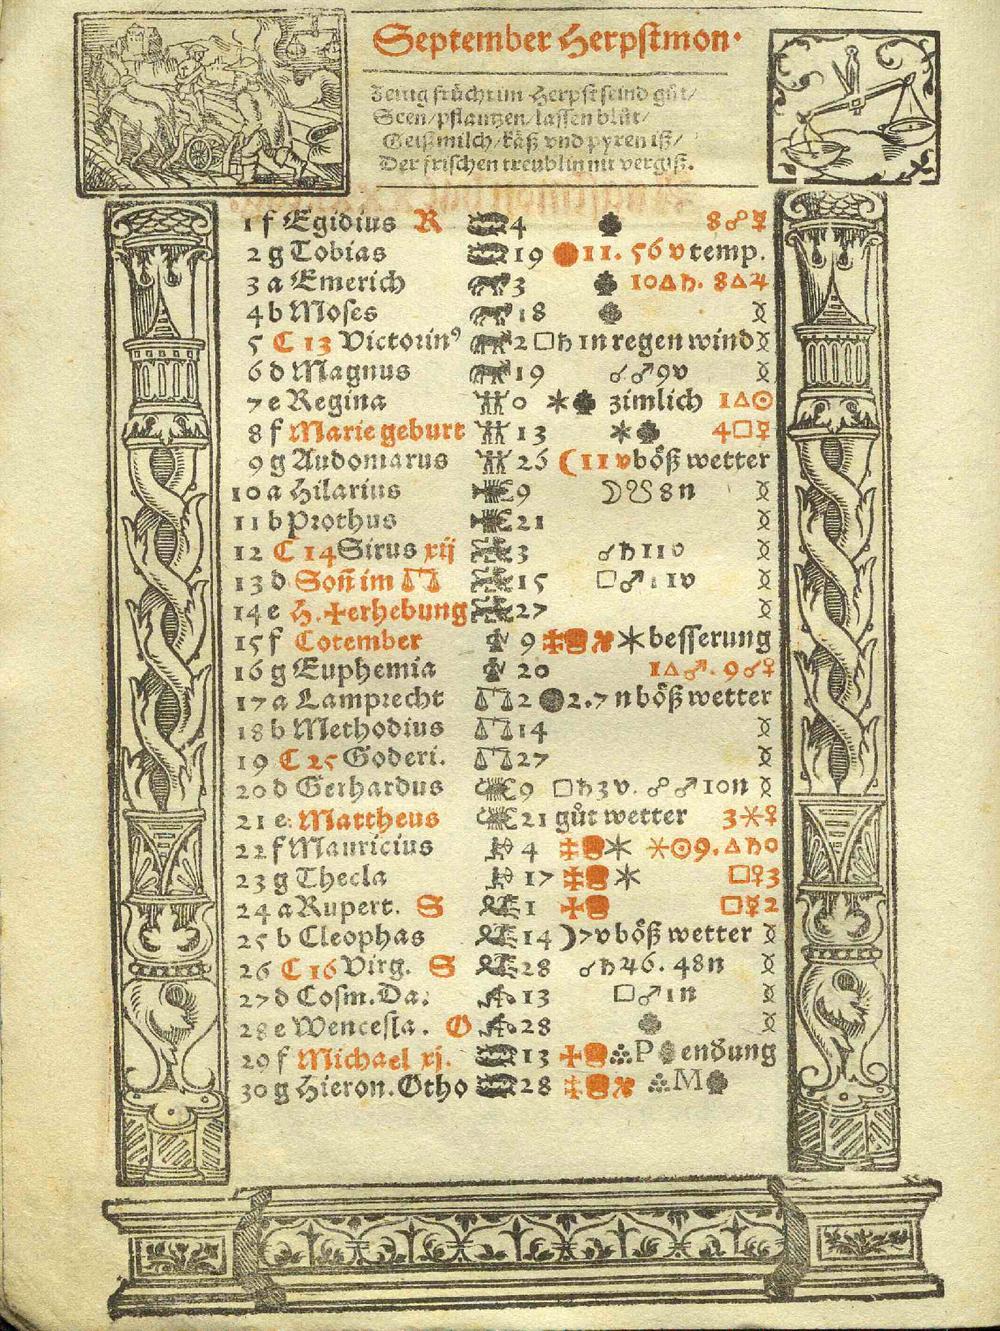 September Herpstmon·
Zeitig frücht im Herpst seind gůt/
Seen/pflantzen/lassen blůt/
Geißmilch/käß vnd pyren iß/
Der frischen treublin nit vergiß.
1 f Egidius R 4 8☍☿
2 g Tobias 19 11. 56 v temp.
3 a Emerich 3 10△♄. 8△♃
4 b Moses 18
5 C 13 Victorinꝰ 2 □♄ 1n regen wind
6 d Magnus 19 ☌♂9v
7 e Regina 0 ✶ zimlich 1△☉
8 f Marie geburt 13 ✶ 4□☿
9 g Audomarus 26 ☾11v böß wetter
10 a Hilarius 9 ☽☋8n
11 b Prothus 21
12 C 14 Sirus xij 3 ☌♄11v
13 d Soñ im ♎ 15 □♂ 11v
14 e H.✠erhebung 27
15 f Cotember 9 ✠ ✶ besserung
16 g Euphemia 20 1△♂. 9☌♀
17 a Lamprecht 2 ●2.7 n böß wetter
18 b Methodius 14
19 C 25 Goderi. 27
20 d Gerhardus 9 □♄3v. ☍♂10n
21 e Mattheus 21 gůt wetter 3✶♀
22 f Mauricius 4 ✠ ✶ ✶☉9.△♄0
23 g Thecla 17 ✠ ✶ □♀3
24 a Rupert. S 1 ✠ □☿2
25 b Cleophas 14 ☽7v böß wetter
26 C 16 Virg. S 28 ☌♄♃6. 48n
27 d Cosm.Da. 13 □♂1n
28 e Wencesla. O 28
29 f Michael xj. 13 ✠ P endung
30 g Hieron.Otho 28 ✠ M